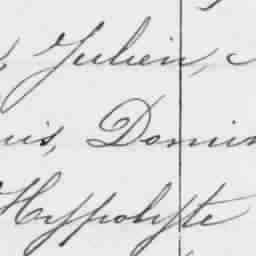 Julien,
uis, Domin
Hyppolyte